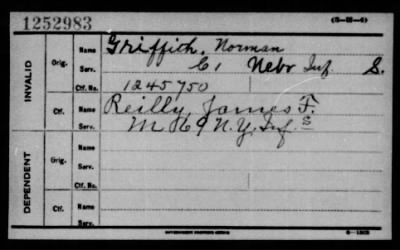 1252983
(3-21-4)
INVALID
Orig. Name Griffith, Norman
Serv. C, 1 Nebr Inf. S.
Ctf. No. 1245750
Ctf. Name Reilly, James F.
Serv. M 69 N.Y. Inf. S
Ctf. No.
DEPENDENT
Orig. Name
Serv.
Ctf. No.
Ctf. Name
Serv.